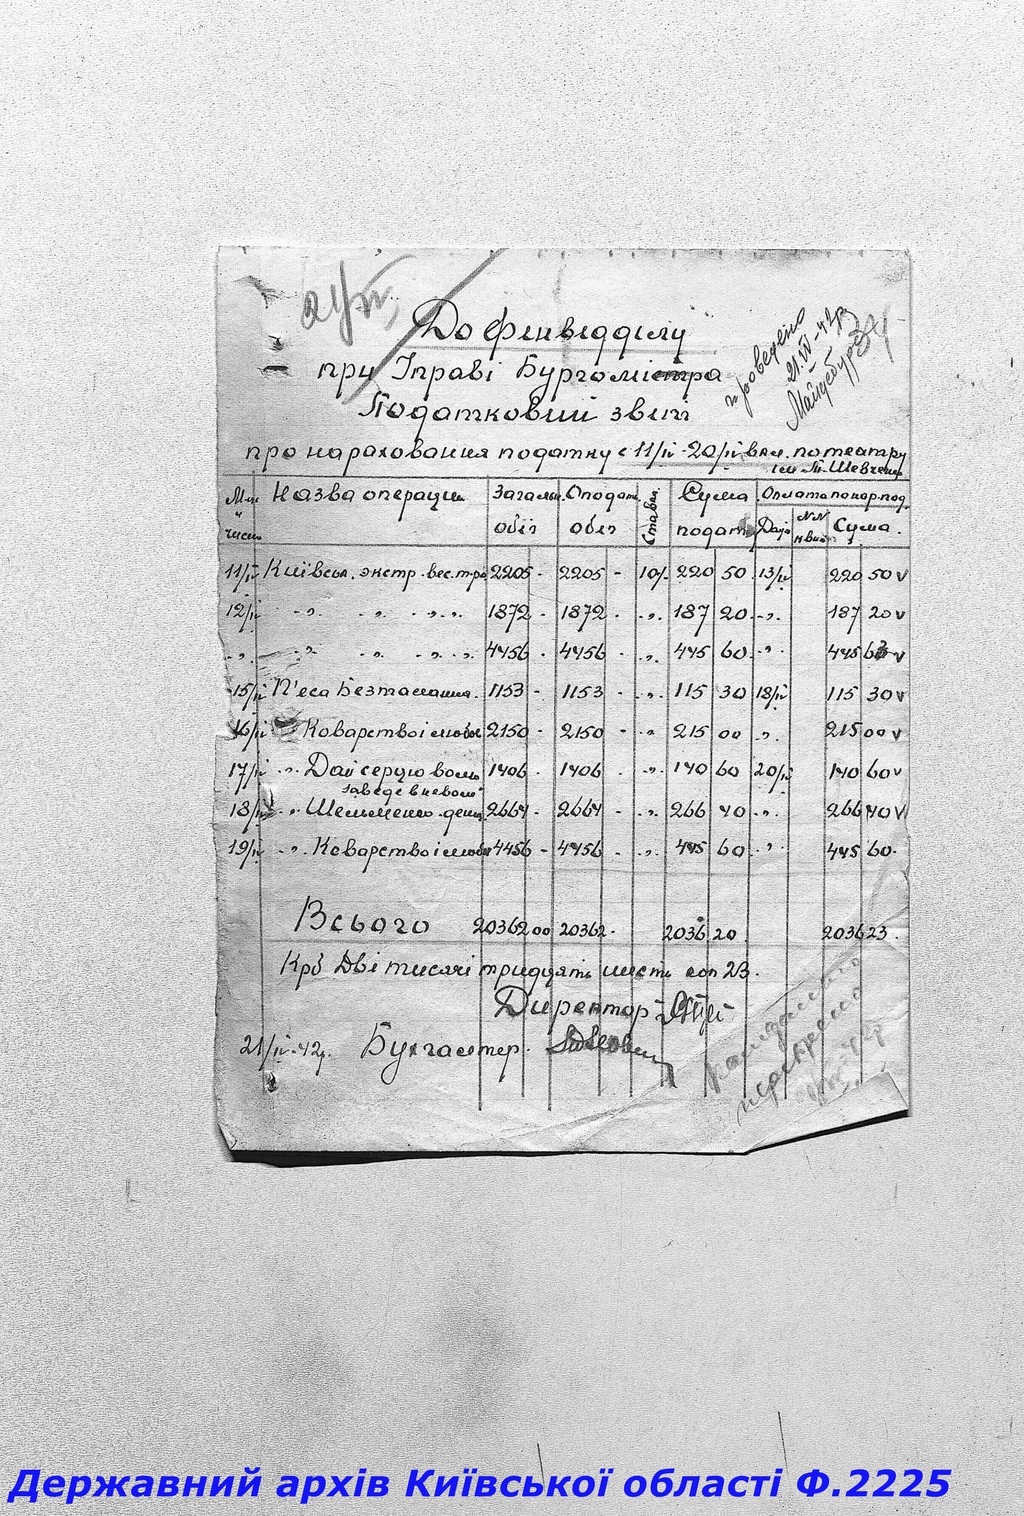 До фінвідділу
при Управі Бургомістра
Податковий звіт
про нарахования податку с 11/IV-20/IV вкл. по театру
ім Т. Шевченк
проведено
21.IV-42р
М-ць і число Назва операции Загальн. обіг Оподат. обіг Ставка Сума податк Оплата по нар. под.
Дата NN квит Сума.
11/IV Київськ. экстр. вес. тра 2205 - 2205 - 10% 220 50 13/IV 220 50 v
12/IV -„- -„- -„-„- 1872 - 1872 - -„- 187 20 -„- 187 20 v
-„- -„- -„- -„-„- 4456 - 4456 - -„- 445 60 -„- 445 63 v
15/IV П'еса Безталання. 1153 - 1153 - -„- 115 30 18/IV 115 30 v
16/IV -„- Коварство і любов 2150 - 2150 - -„- 215 00 -„- 215 00 v
17/IV -„- Дай серцю волю 1406 - 1406 - -„- 140 60 20/IV 140 60 v
заведе в неволю"
18/IV -„- Шельменко-денщ. 2664 - 2664 - -„- 266 40 -„- 266 40 v
19/IV -„- Коварство і любов 4456 - 4456 - -„- 445 60 -„- 445 60.
Всього 20362 00 20362 - 2036 20 2036 23.
Крб Дві тисячі тридцять шисть коп 23.
Директор
21/IV-42р. Бухгалтер.
Державний архів Київської області Ф.2225